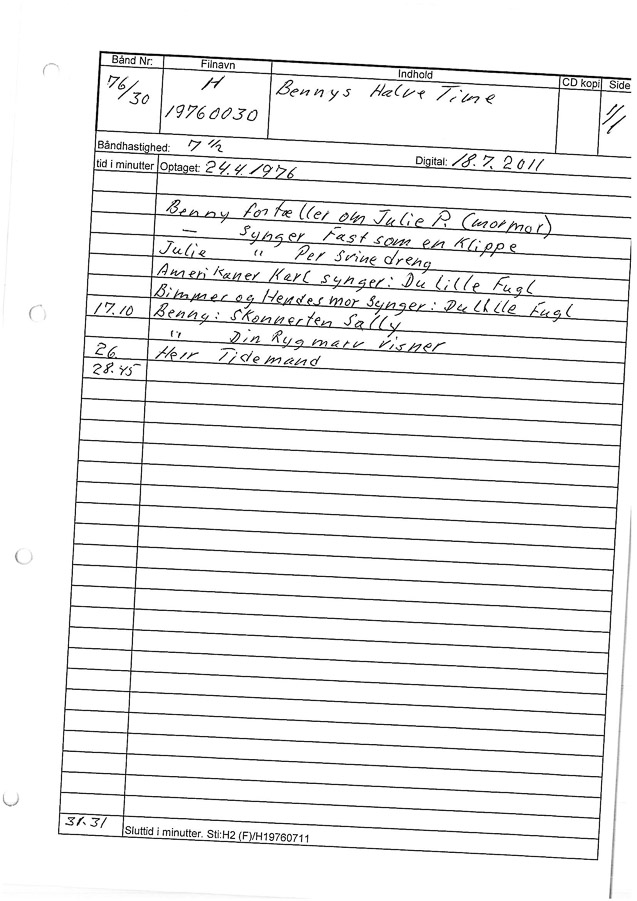 Bånd Nr: Filnavn Indhold CD kopi Side
76/30 H Bennys Halve Time 1/1
19760030
Båndhastighed: 7 ½
tid i minutter Optaget: 24.4.1976 Digital: 18.7.2011
Benny fortæller om Julie P. (mormor)
— Synger Fast som en Klippe
Julie " Per Svinedreng
Amerikaner Karl synger: Du lille Fugl
Bimmer og Hendes mor Synger: Du lille Fugl
17.10 Benny: Skonnerten Sally
" Din Rygmarv visner
26 Herr Tidemand
28.45
31.31 Sluttid i minutter. Sti:H2 (F)/H19760711